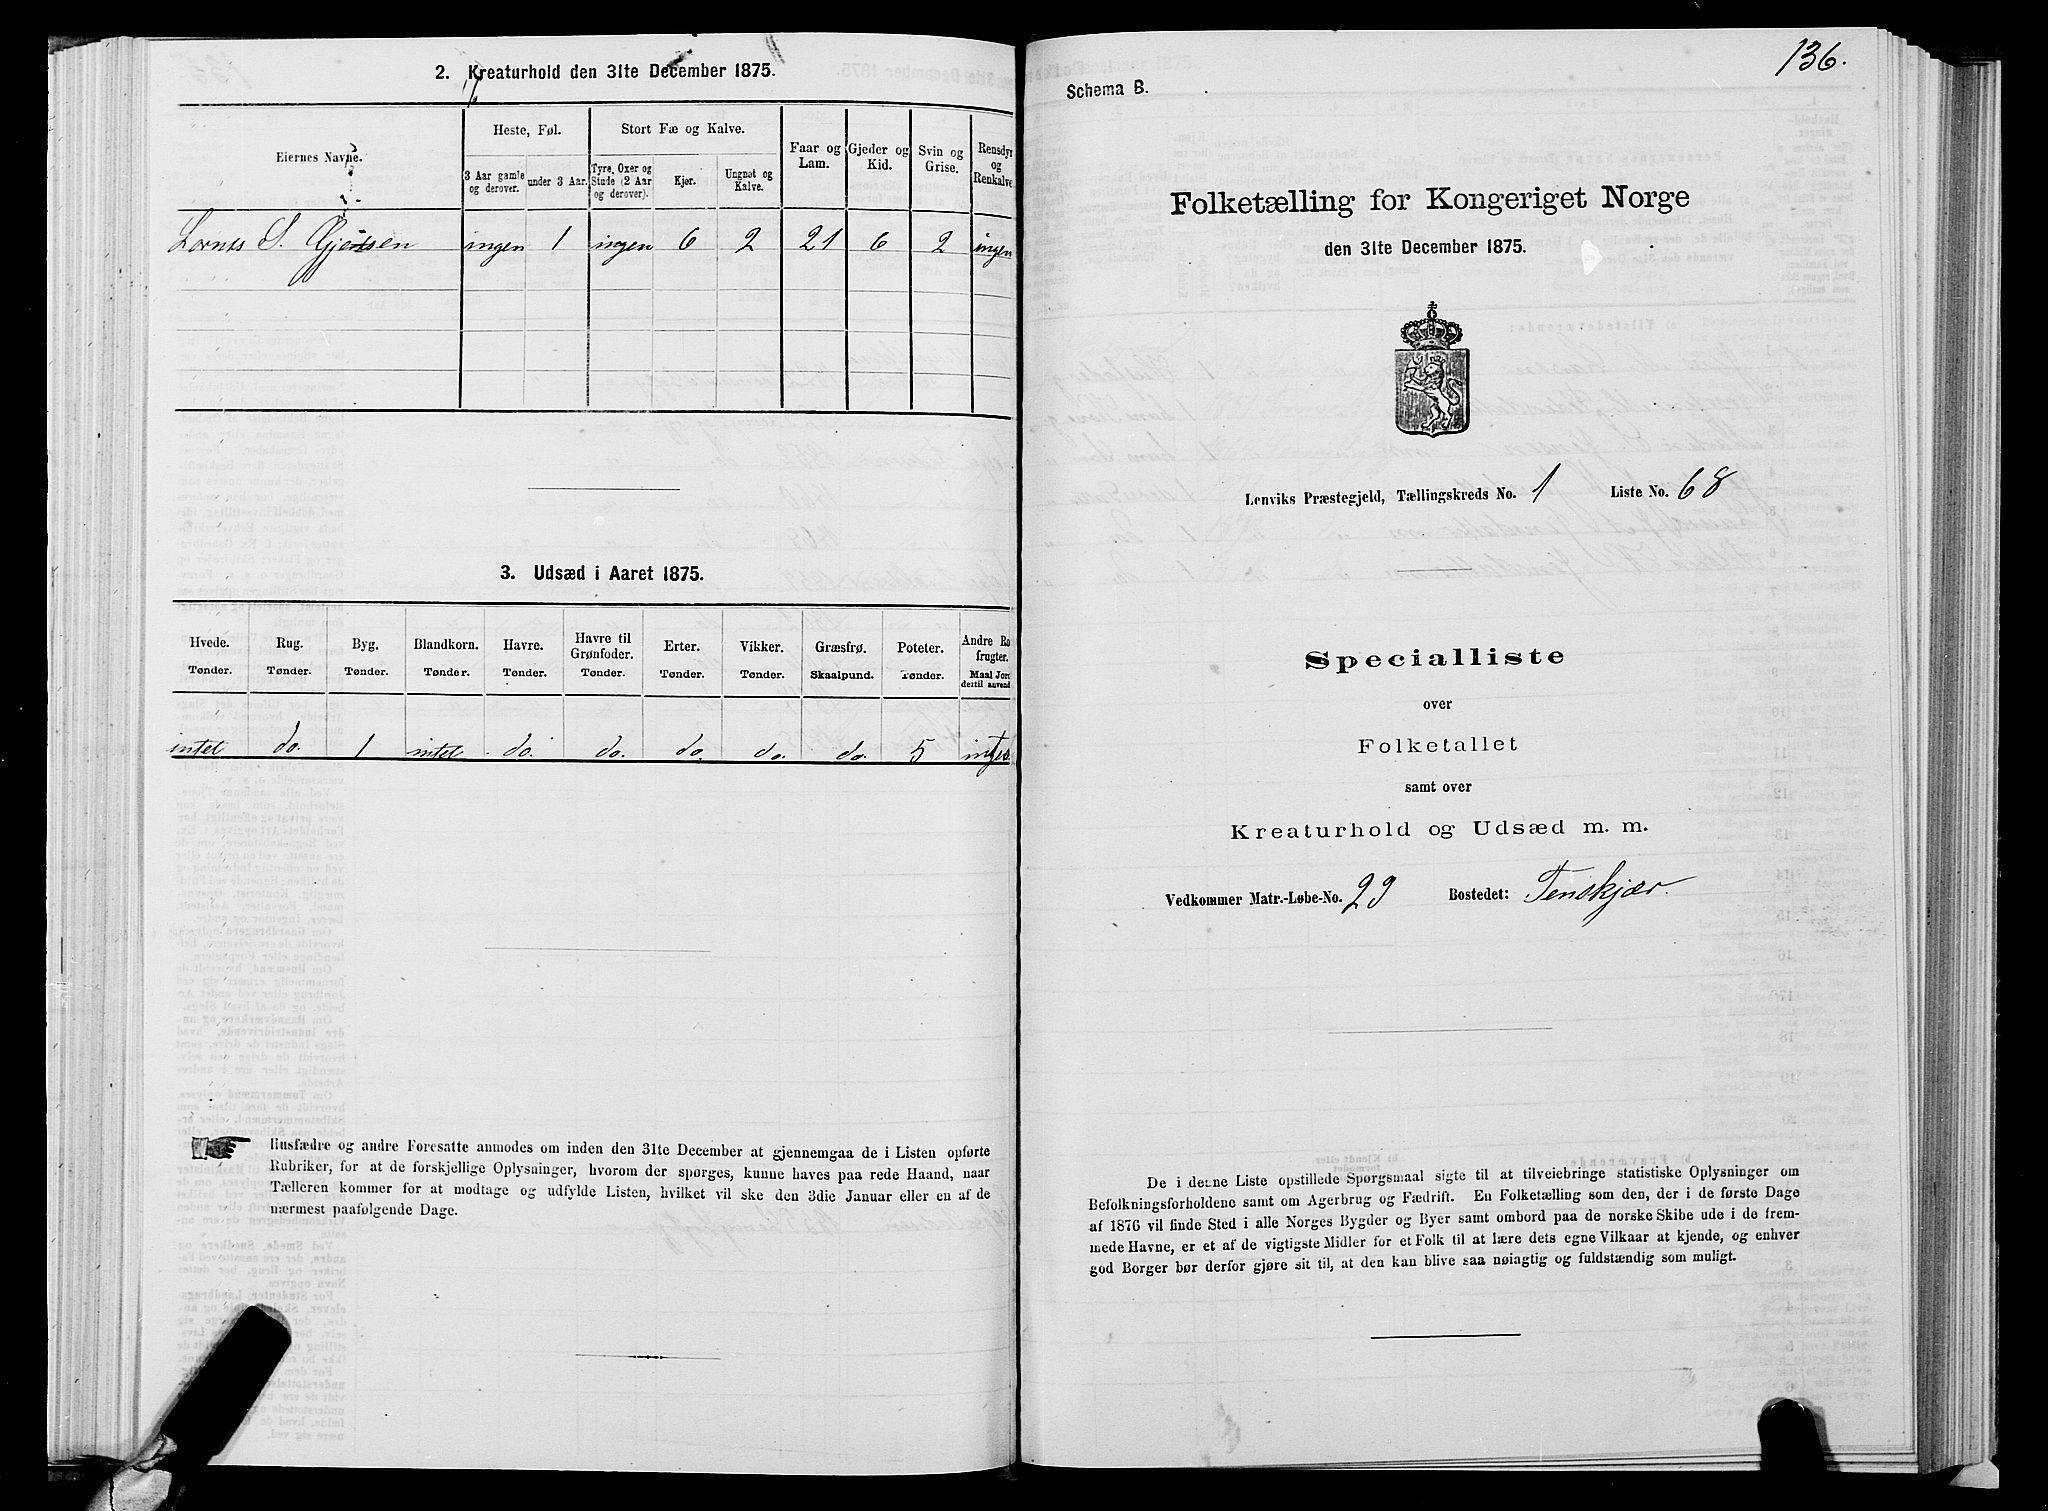 2. Kreaturhold den 31te December 1875.
Eiernes Navne.
Heste, Føl.
Stort Fæ og Kalve.
Faar og Lam.
Gjeder og Kid.
Svin og Grise.
Rensdyr og Renkalve
3 Aar gamle og derover.
under 3 Aar.
Tyre, Oxer og Stude (2 Aar og derover).
Kjør.
Ungnøt og Kalve.
S. ingen 1 ingen 6 2 21 6 2 ingen
3. Udsæd i Aaret 1875.
Hvede. Rug. Byg. Blandkorn. Havre. Havre til Grønfoder. Erter. Vikker. Græsfrø. Poteter. Andre Ro frugter.
Tønder. Tønder. Tønder. Tønder. Tønder. Tønder. Tønder. Tønder. Skaalpund. Tønder. Maal Jord dertil anvend
intet do. 1 intet do. do. do. do. do. 5
Husfædre og andre Foresatte anmodes om inden den 31te December at gjennemgaa de i Listen opførte
Rubriker, for at de forskjellige Oplysninger, hvorom der spørges, kunne haves paa rede Haand, naar
Tælleren kommer for at modtage og udfylde Listen, hvilket vil ske den 3die Januar eller en af de
nærmest paafølgende Dage.
136.
Schema B.
Folketælling for Kongeriget Norge
den 31te December 1875.
Lenviks Præstegjeld, Tællingskreds No. 1 Liste No. 68
Specialliste
over
Folketallet
samt over
Kreaturhold og Udsæd m. m.
Vedkommer Matr.-Løbe-No. 23 Bostedet: Tenskjær.
De i denne Liste opstillede Spørgsmaal sigte til at tilveiebringe statistiske Oplysninger om
Befolkningsforholdene samt om Agerbrug og Fædrift. En Folketælling som den, der i de første Dage
af 1876 vil finde Sted i alle Norges Bygder og Byer samt ombord paa de norske Skibe ude i de frem-
mede Havne, er et af de vigtigste Midler for et Folk til at lære dets egne Vilkaar at kjende, og enhver
god Borger bør derfor gjøre sit til, at den kan blive saa nøiagtig og fuldstændig som muligt.